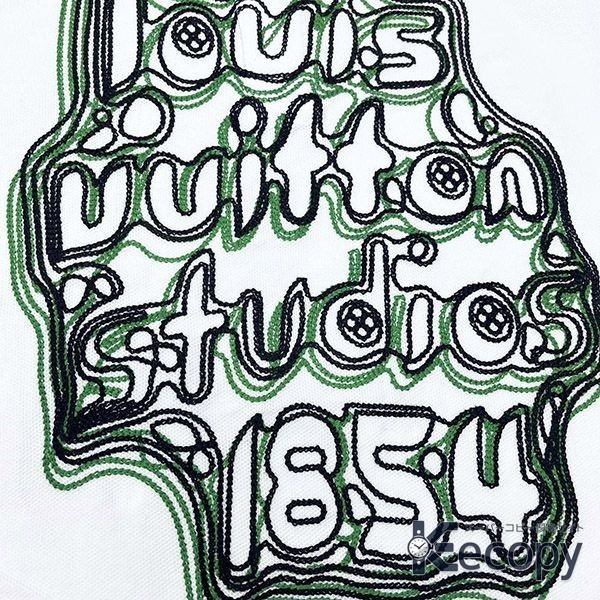 louis
vuitton
studios
1854
Kecopy